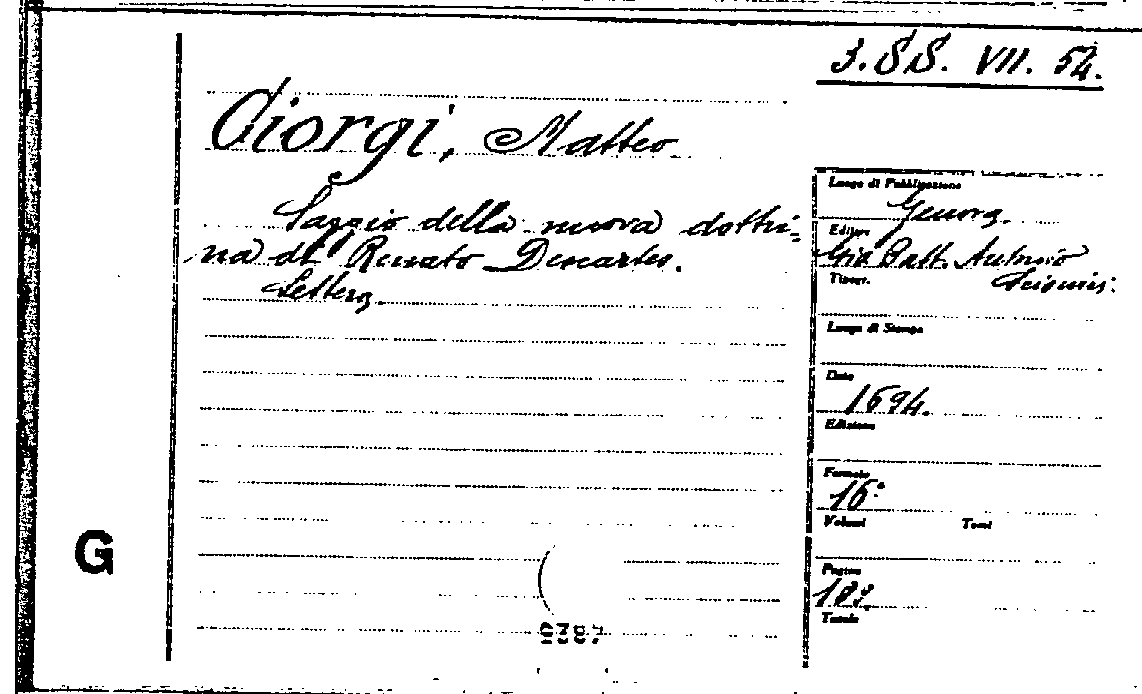 3.SS. VII. 54.
Giorgi, Matteo
Saggio della nuova dottri-
na di Renato Descartes.
Lettera.
Luogo di Pubblicazione
Genova.
Editore
Gio Batt. Antonio
Tipogr.
Luogo di Stampa
Data
1694.
Edizione
Formato
16°
Volumi Tomi
Pagine
Tavole
G